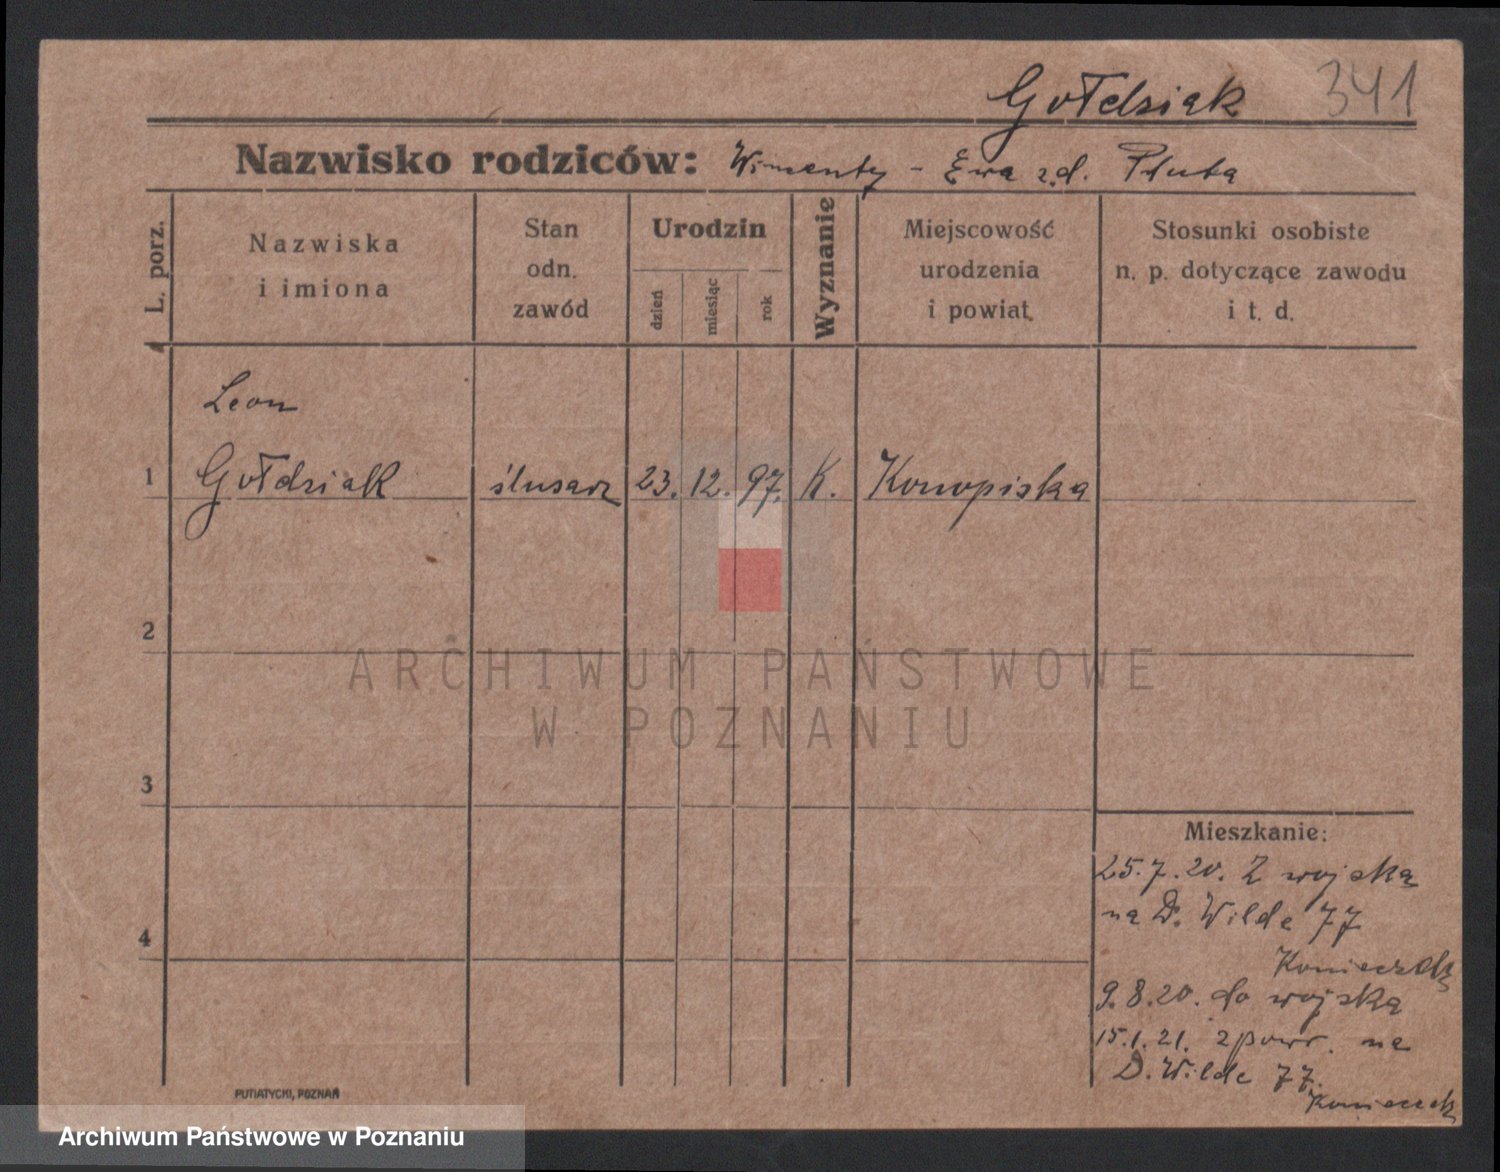 Gołdziak 341
Nazwisko rodziców: Wincenty - Ewa z.d. Pluta
L. porz.
Nazwiska
i imiona
Stan
odn.
zawód
Urodzin
dzień
miesiąc
rok
Wyznanie
Miejscowość
urodzenia
i powiat.
Stosunki osobiste
n. p. dotyczące zawodu
i t. d.
Leon
1 Gołdziak ślusarz 23. 12. 97. K. Konopiska
2
ARCHIWUM PAŃSTWOWE
W POZNANIU
3
4
Mieszkanie:
25.7.20. Z wojska
na D. Wilde 77
9.8.20. do wojska
15.1.21. z powr. na
D. Wilde 77.
PUTIATYCKI, POZNAŃ
Archiwum Państwowe w Poznaniu